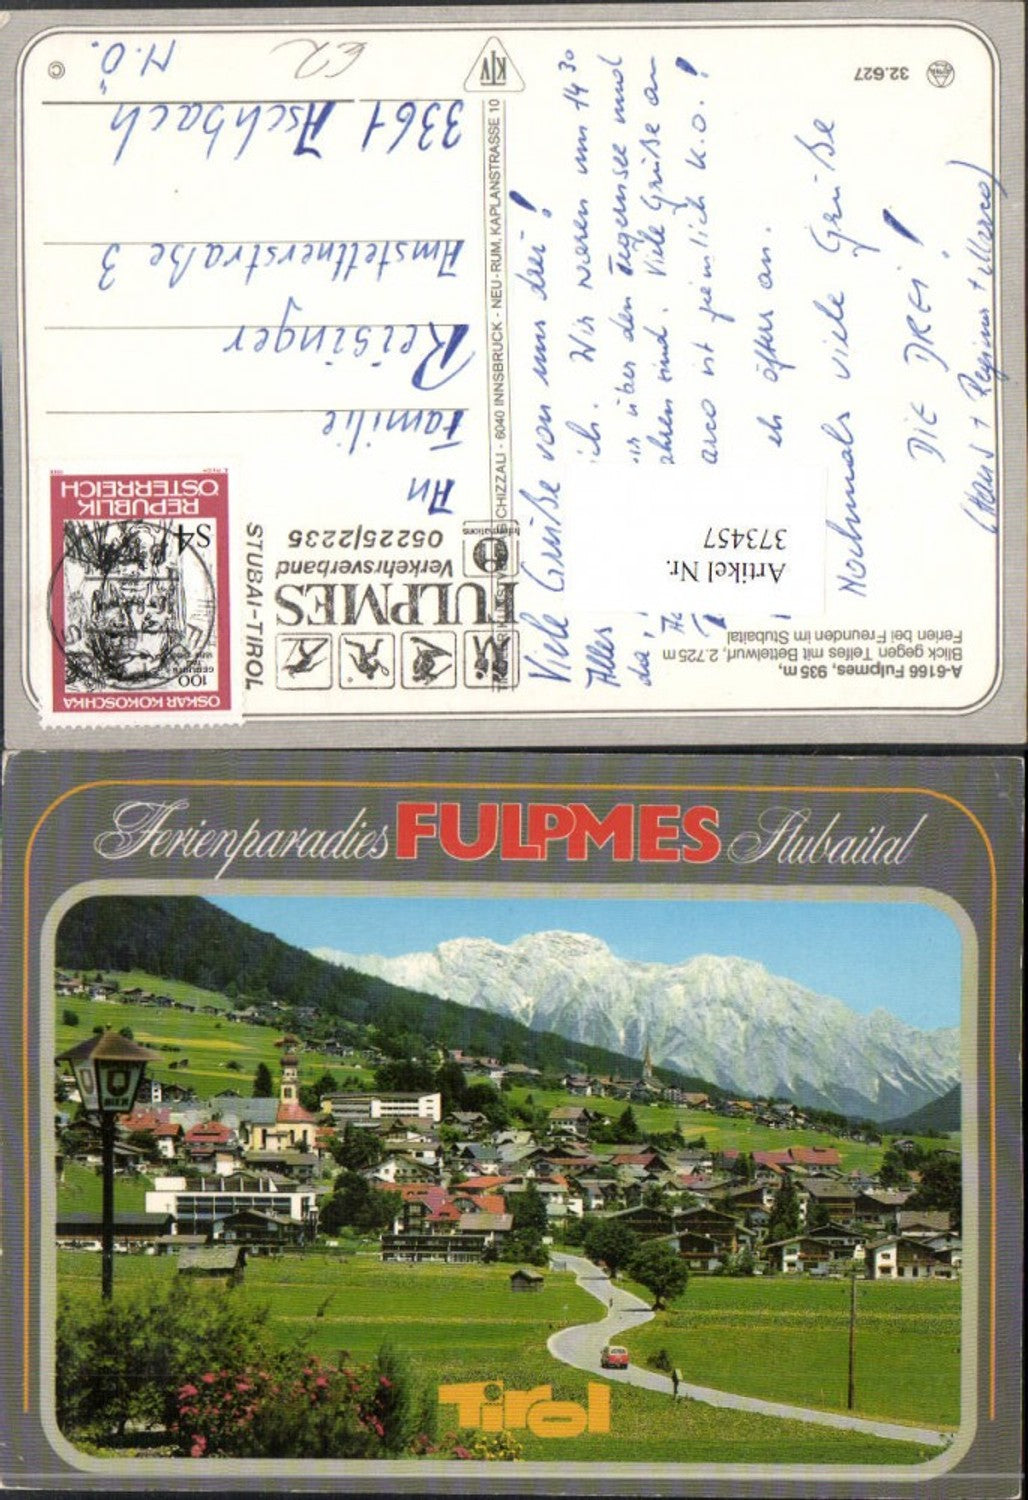 A-6166 Fulpmes, 935 m,
Blick gegen Telfes mit Bettelwurf, 2.725 m
Ferien bei Freunden im Stubaital
Artikel Nr.
373457
Viele Grüße von uns drei!
Alles
ich. Wir waren um 14 30
da,
über den Tegernsee und
sind. Viele Grüße an
arco ist ziemlich k.o.!
eh öfters an.
Nochmals viele Grüße
DIE DREI!
(Hans + Regina + Marco)
32.627
KIV
CHIZZALI - 6040 INNSBRUCK - NEU-RUM, KAPLANSTRASSE 10
FULPMES
Verkehrsverband
05225/2235
STUBAI-TIROL
International
OSKAR KOKOSCHKA
100
GEBURTSTAG
S4
REPUBLIK
ÖSTERREICH
An
Familie
Reisinger
Amstettnerstraße 3
3361 Aschbach
N.Ö.
©
Ferienparadies FULPMES Stubaital
BIER
Tirol